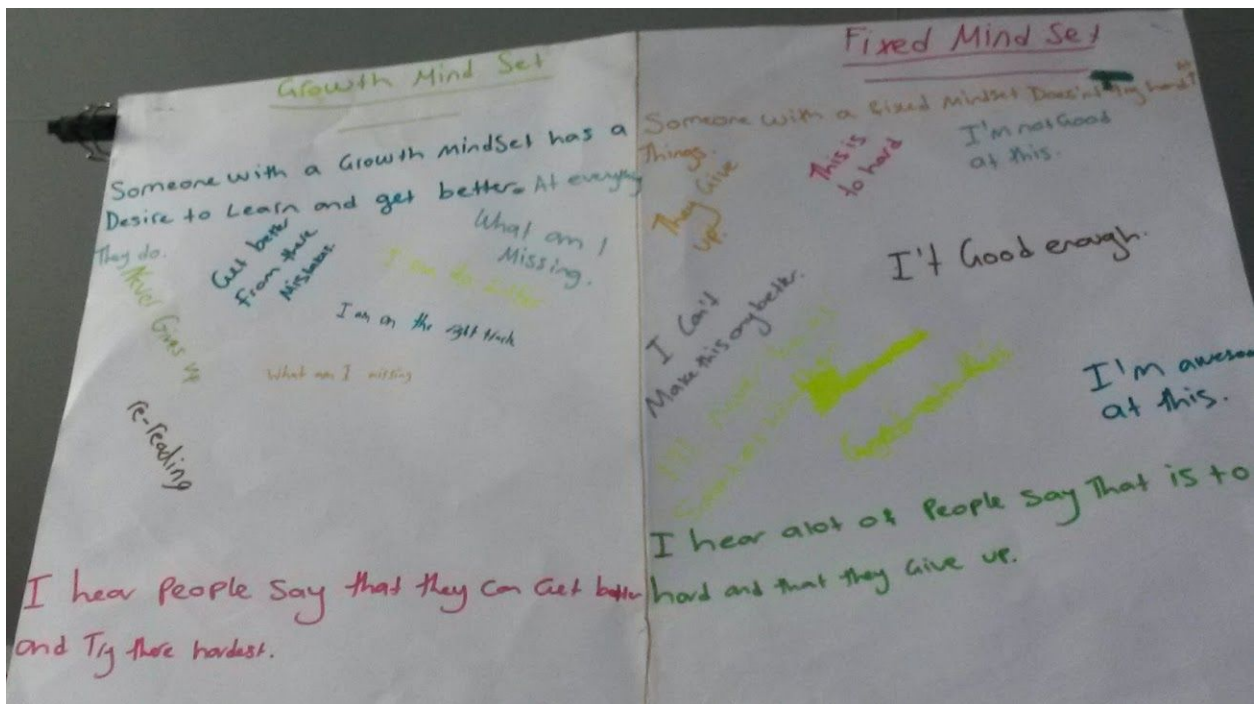 Growth Mind Set
Someone with a Growth MindSet has a
Desire to Learn and get better. At everything
They do.
Get better
From there
Mistakes.
What am I
Missing.
Never Gives up
I am on the right track
What am I missing
re-reading
I hear People Say that they Can Get better
and Try there hardest.
Fixed Mind Set
Someone with a Fixed Mindset Doesn't Try hard At
Things.
They Give
up.
This is
to hard
I'm not Good
at this.
I't Good enough.
I Can't
Make this any better.
I'll never be as
I'm aweso
at this.
I hear alot of People Say That is to
hard and that they Give up.